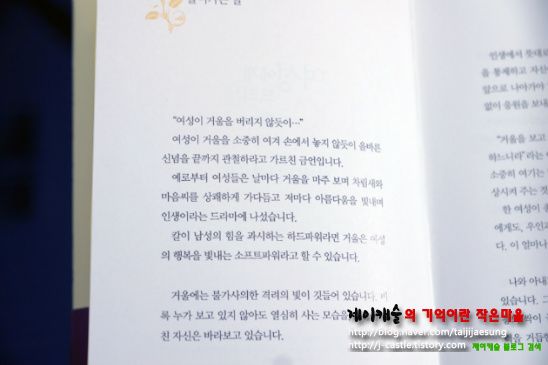 "여성이 거울을 버리지 않듯이…"
여성이 거울을 소중히 여겨 손에서 놓지 않듯이 올바른
신념을 끝까지 관철하라고 가르친 금언입니다.
예로부터 여성들은 날마다 거울을 마주 보며 차림새와
마음씨를 상쾌하게 가다듬고 저마다 아름다움을 빛내며
인생이라는 드라마에 나섰습니다.
칼이 남성의 힘을 과시하는 하드파워라면 거울은 여성
의 행복을 빛내는 소프트파워라고 할 수 있습니다.
거울에는 불가사의한 격려의 빛이 깃들어 있습니다. 비
록 누가 보고 있지 않아도 열심히 사는 모습을
친 자신은 바라보고 있습니다.
인생에서
을 통쾌하고 자신
앞으로 나아가야
없이 응원을 보내
"거울을 보고
하느니라"라는
소중히 여기는
상시켜 주는 것
한 여성이
에게도, 우인
다. 이 얼마나
나와 아내
있습니다. 그
제이캐슬의 기억이란 작은마을
http://blog.naver.com/taijijaesung
http://j-castle.tistory.com 제이캐슬 블로그 검색